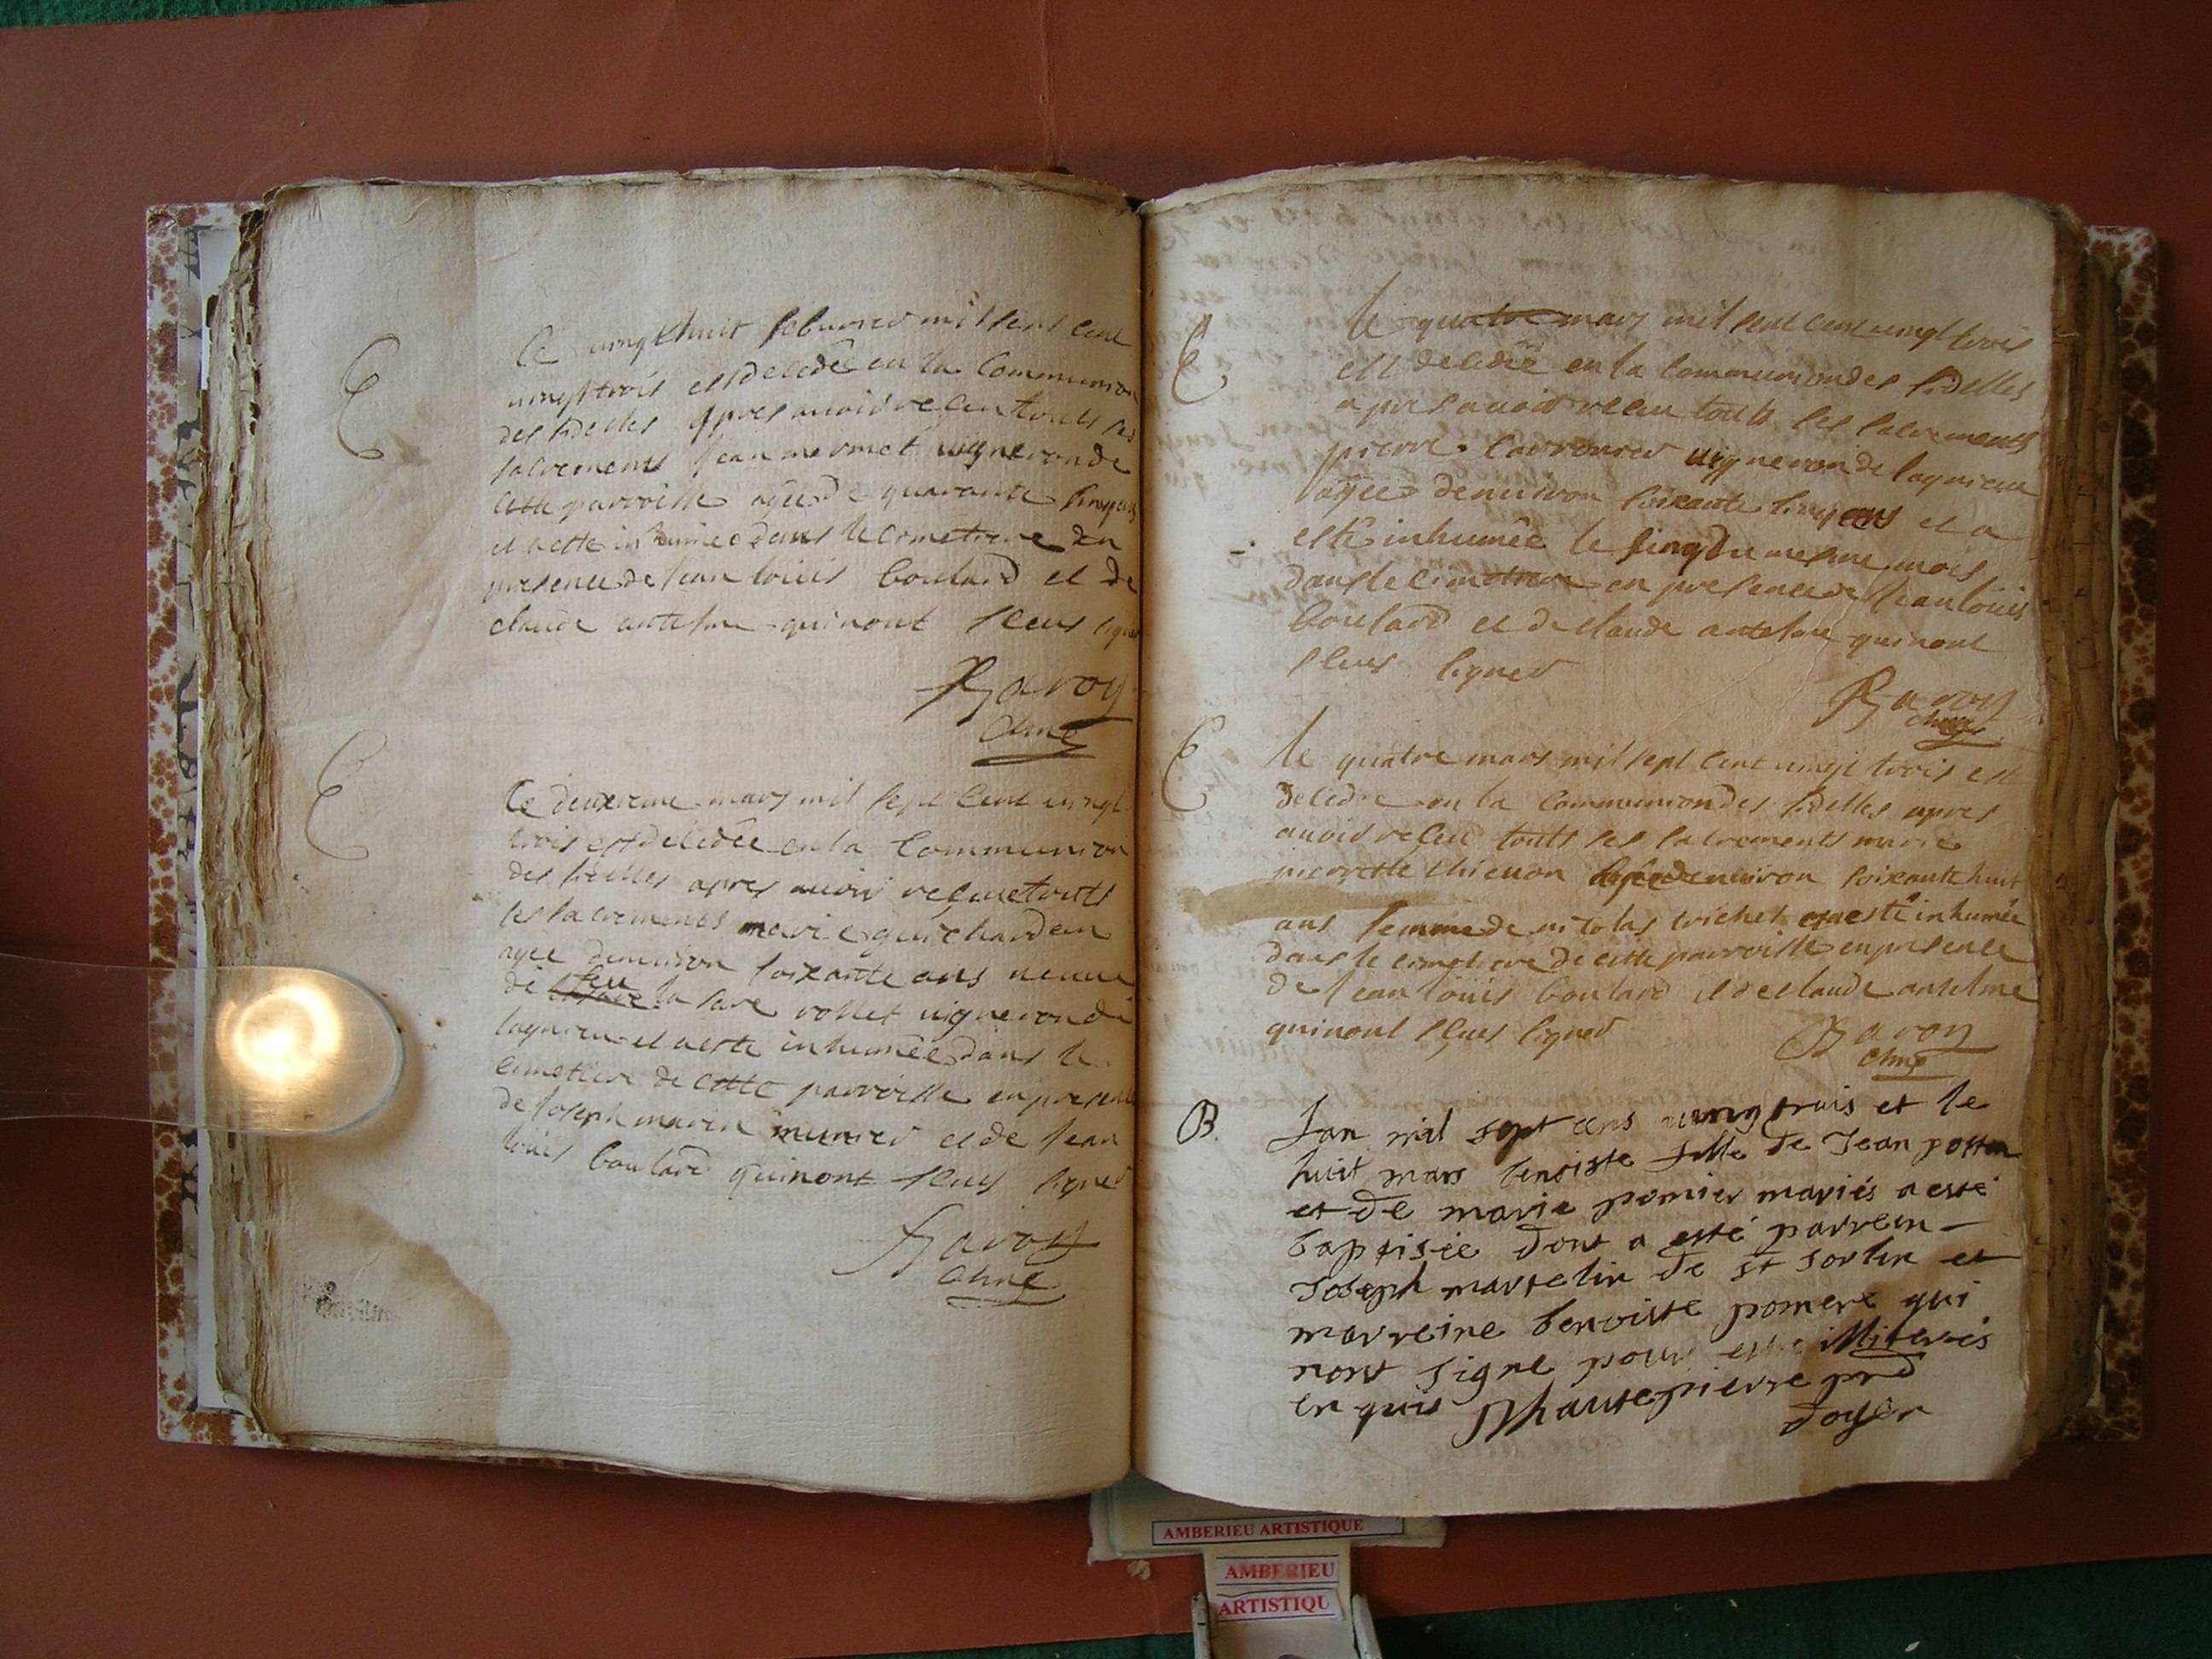 E
Ce vingthuit feburier mil sept cent
vingttrois est decedêe en la Communion
des fidelles apres avoir receu touts ses
sacrements Jean mermet vigneron de
cette parroisse agée de quarante
et a esté inhumée dans le cimetiere en
presence de Jean louis boulard et de
claude antelme qui n'ont sceus signer
Baron
E
Ce deuxieme mars mil sept cent vingt
trois est decedêe en la Communion
des fidelles apres avoir receu touts
les sacrements marie guichardon
agee denviron soixante ans veuve
de feu rollet vigneron de
lagnieu et a esté inhumêe dans le
cimetiere de cette parroisse en presence
de Joseph marin munier et de Jean
louis boulard qui n'ont sceus signer
Baron
E
le quatre mars mil sept cent vingt trois
est decedêe en la Communion des fidelles
apres avoir receu touts les sacrements
pierre vigneron de lagnieu
agée denviron soixante ans et a
estê inhumêe le sinq du mesme mois
dans le cimetiere en presence de Jean louis
boulard et de claude antelme qui nont
sceus signer
Baron
E
le quatre mars mil sept cent vingt trois est
decedee en la Communion des fidelles apres
avoir receu touts ses sacrements marie
pierrette agêe denviron soixante huit
ans femme de nicolas trichet a estê inhumêe
dans le cimetiere de cette parroisse en presence
de Jean louis boulard et de claude antelme
qui nont sceus signer
Baron
B.
Lan mil sept cens vingtrois et le
huit mars benoiste fille de Jean
et de marie pomier mariés a esté
baptisée dont a esté parrein
Joseph martelin de st sorlin et
marreine benoiste pomere qui
nont signe pour estre illiterés
en quis hautepierre
doyen
AMBERIEU ARTISTIQUE
AMBERIEU
ARTISTIQU